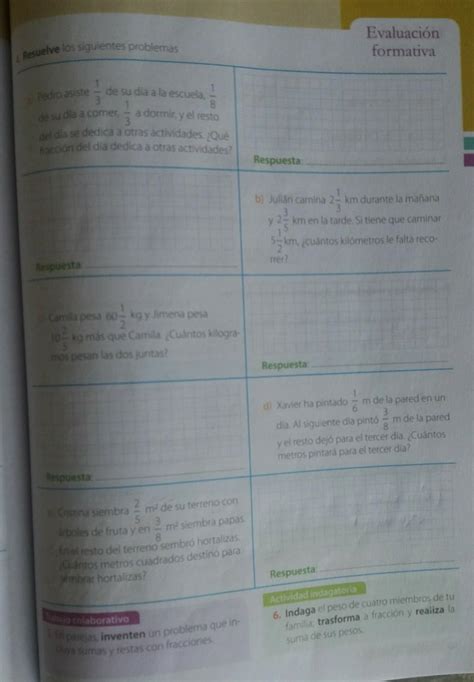 Evaluación
formativa
Resuelve los siguientes problemas
a) Pedro asiste 1/3 de su día a la escuela, 1/8
de su día a comer, 1/3 a dormir, y el resto
del día se dedica a otras actividades. ¿Qué
fracción del día dedica a otras actividades?
Respuesta:
b) Julián camina 2 1/3 km durante la mañana
y 2 3/5 km en la tarde. Si tiene que caminar
5 1/2 km, ¿cuántos kilómetros le falta reco-
rrer?
Respuesta:
Camila pesa 60 1/2 kg y Jimena pesa
10 2/5 kg más que Camila. ¿Cuántos kilogra-
mos pesan las dos juntas?
Respuesta:
d) Xavier ha pintado 1/6 m de la pared en un
día. Al siguiente día pintó 3/8 m de la pared
y el resto dejó para el tercer día. ¿Cuántos
metros pintará para el tercer día?
Respuesta:
Cristina siembra 2/5 m² de su terreno con
árboles de fruta y en 3/8 m² siembra papas.
En el resto del terreno sembró hortalizas.
¿Cuántos metros cuadrados destinó para
sembrar hortalizas?
Respuesta:
Trabajo colaborativo
En parejas, inventen un problema que in-
cluya sumas y restas con fracciones.
Actividad indagatoria
6. Indaga el peso de cuatro miembros de tu
familia, trasforma a fracción y realiza la
suma de sus pesos.